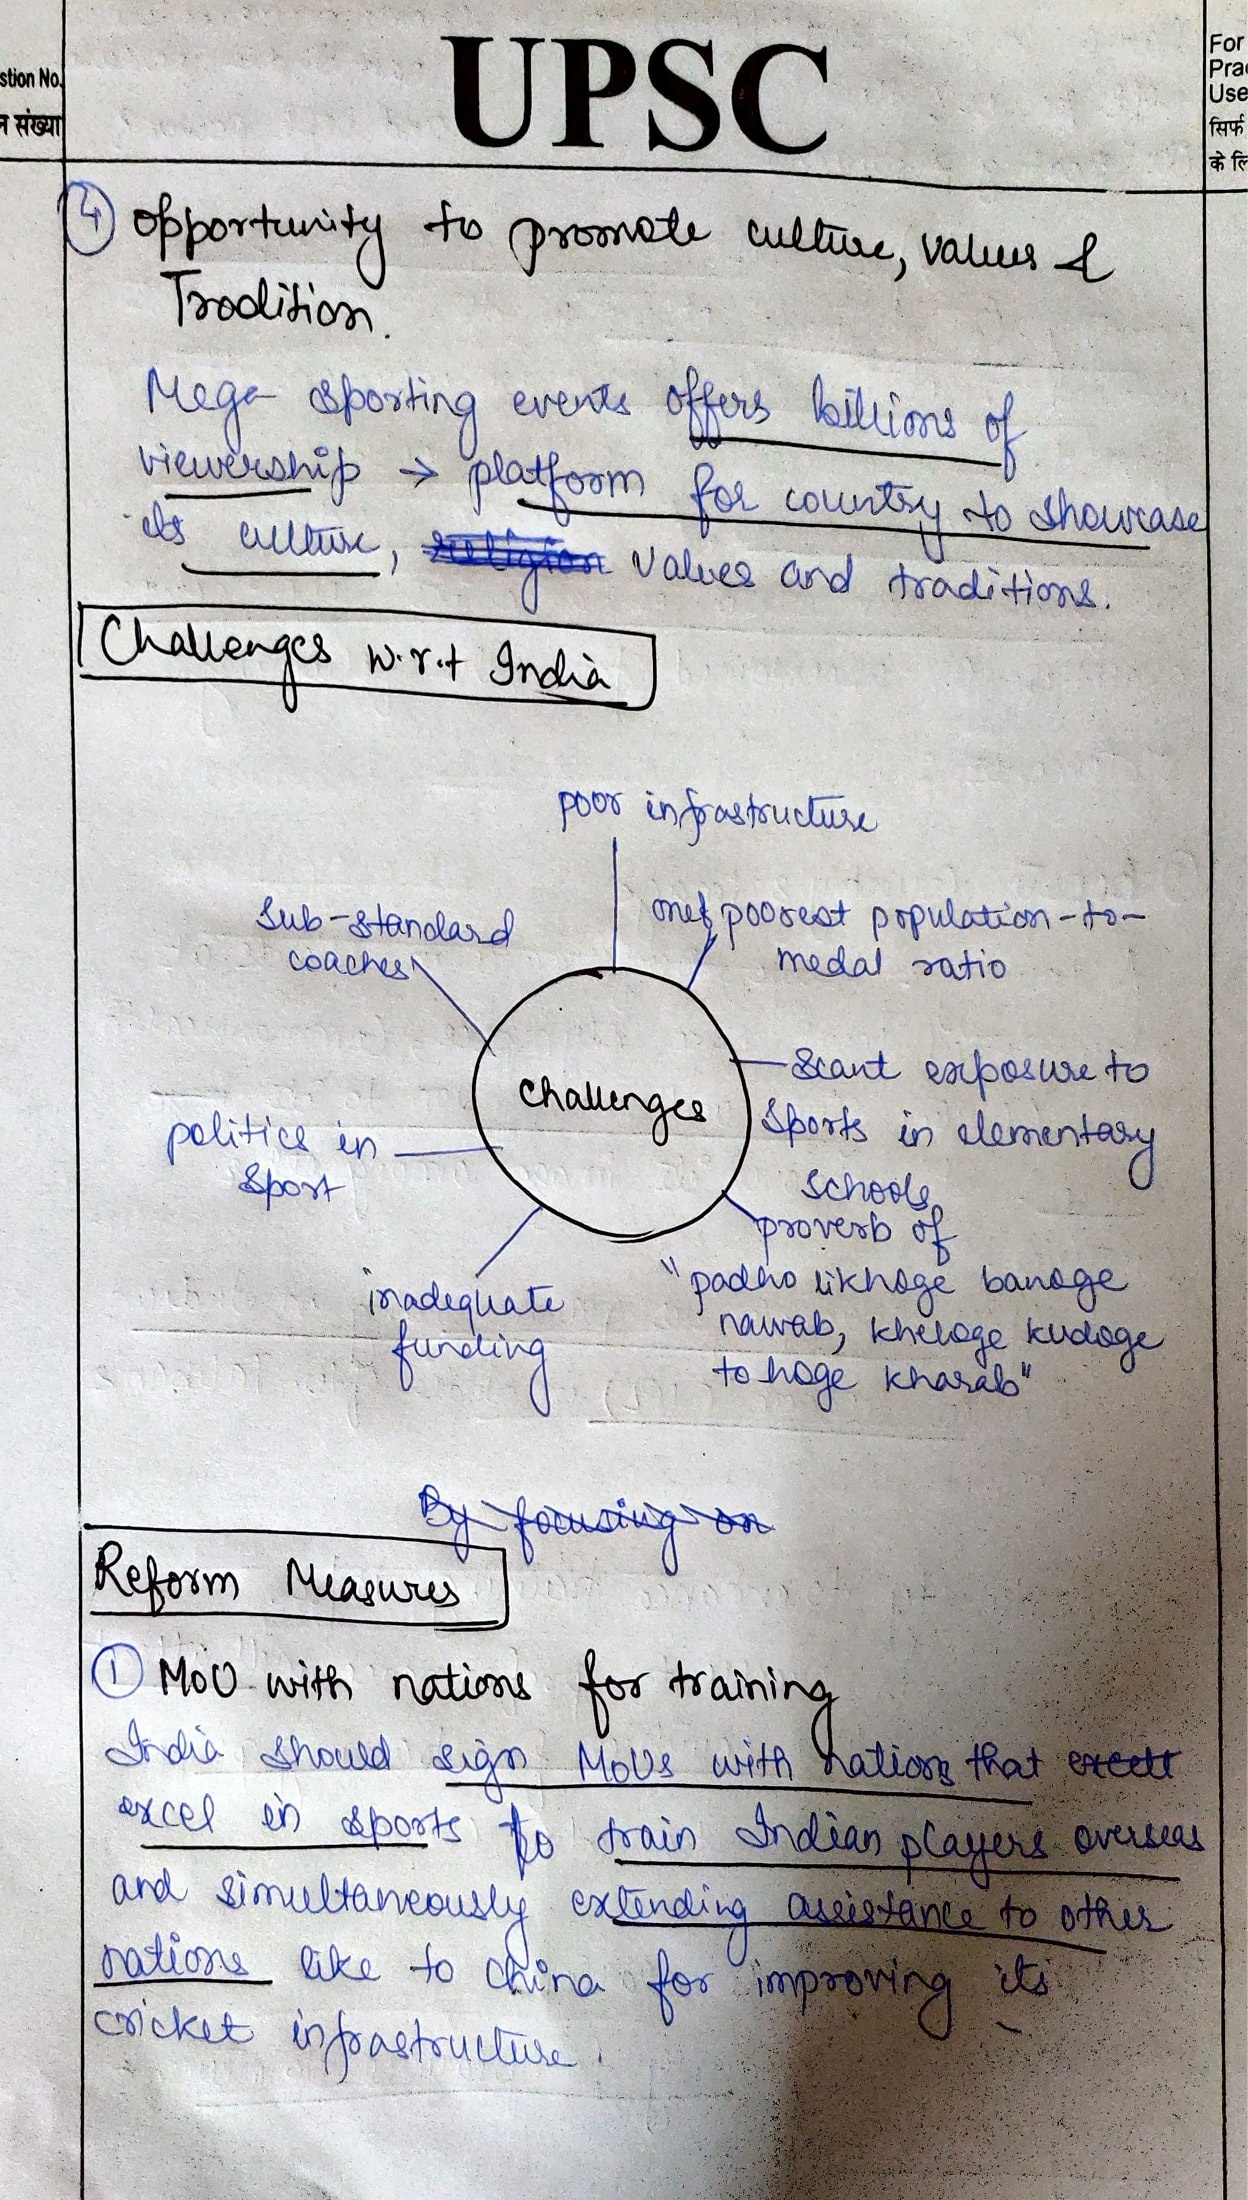 UPSC
stion No.
न संख्या
For
Prac
Use
सिर्फ
के लि
4 opportunity to promote culture, values &
Tradition.
Mega sporting events offers billions of
viewership → platform for country to showcase
its culture, religion values and traditions.
Challenges w.r.t India
poor infrastructure
one of poorest population-to-
medal ratio
Sub-standard
coaches
Scant exposure to
sports in elementary
schools
challenges
politics in
sport
proverb of
"padho likhoge banoge
nawab, kheloge kudoge
to hoge kharab"
inadequate
funding
By focusing on
Reform Measures
1 MoU with nations for training
India should sign MoUs with nations that excell
excel in sports to train Indian players overseas
and simultaneously extending assistance to other
nations like to china for improving its
cricket infrastructure.